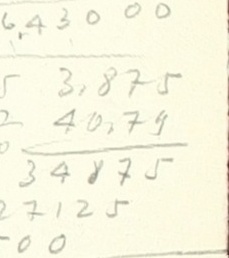 6,43000
5 3,875
2 40,79
0
34875
27125
500